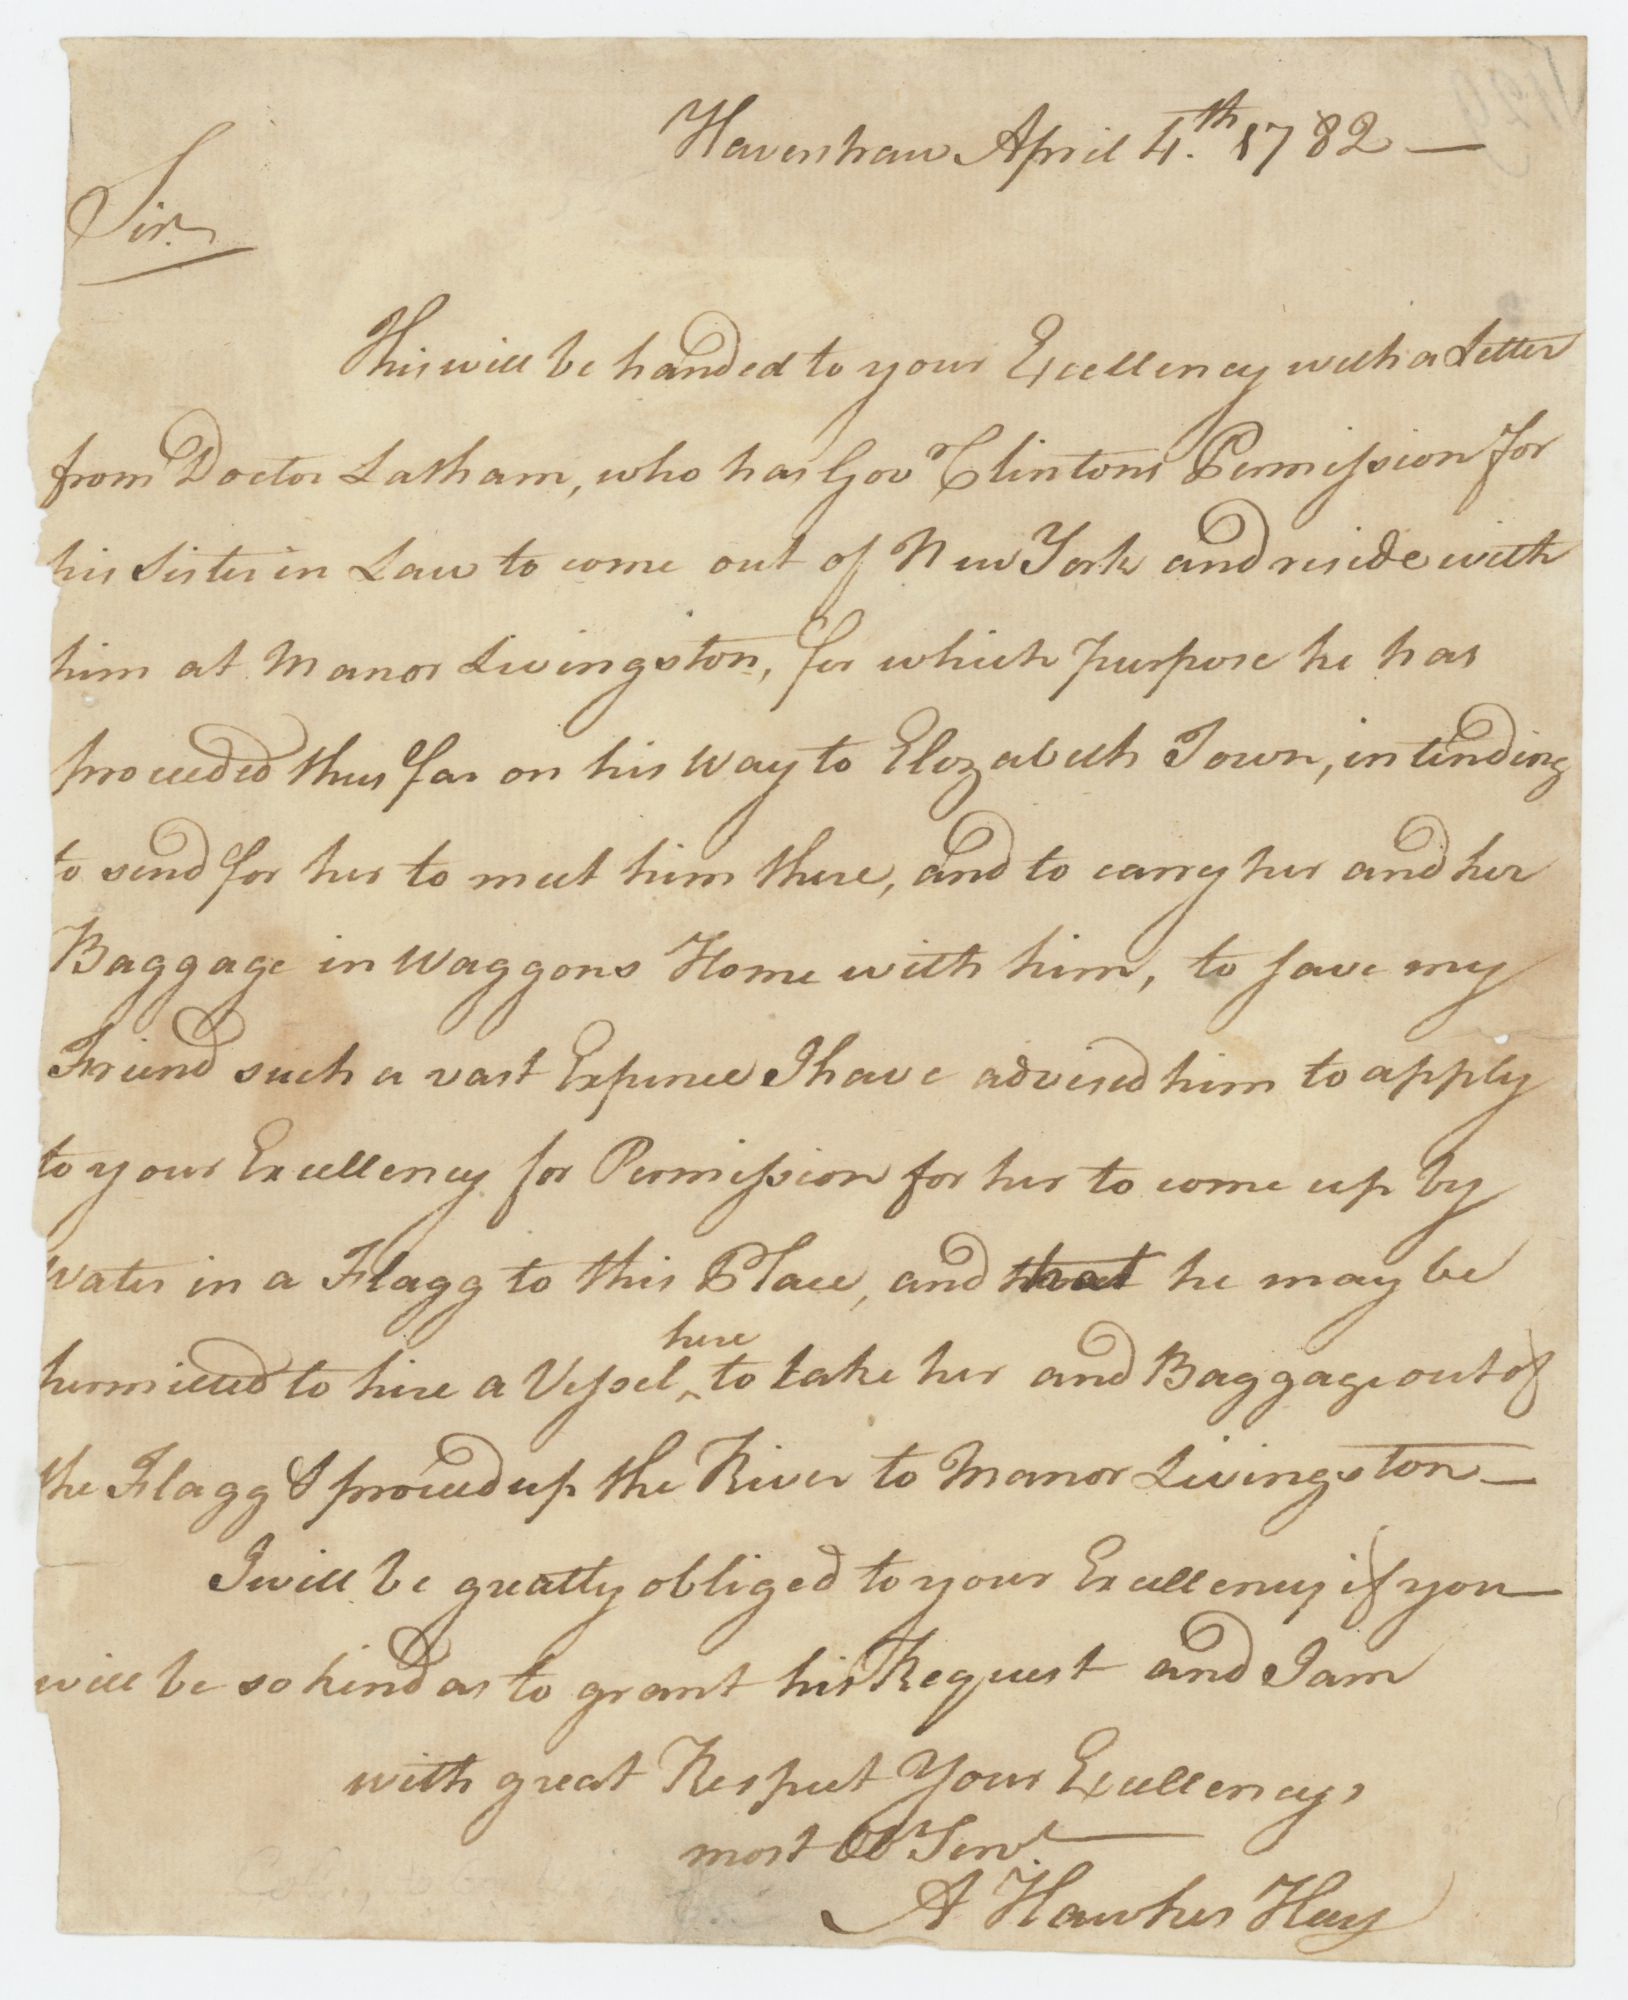 Haverstraw April 4.th 1782 —
Sir.
This will be handed to your Excellency with a Letter
from Doctor Latham, who has Gov.r Clintons Permission for
his Sister in Law to come out of New York and reside with
him at Manor Livingston, for which purpose he has
proceeded thus far on his way to Elizabeth Town, intending
to send for her to meet him there, and to carry her and her
Baggage in Waggons Home with him, to save my
Friend such a vast Expence I have advised him to apply
to your Excellency for Permission for her to come up by
Water in a Flagg to this Place, and that he may be
permitted to hire a Vessel ^here to take her and Baggage out of
the Flagg & proceed up the River to Manor Livingston —
I will be greatly obliged to your Excellency if you
will be so kind as to grant his Request and I am
with great Respect Your Excellencys
most Ob Servt
A Hawkes Hay